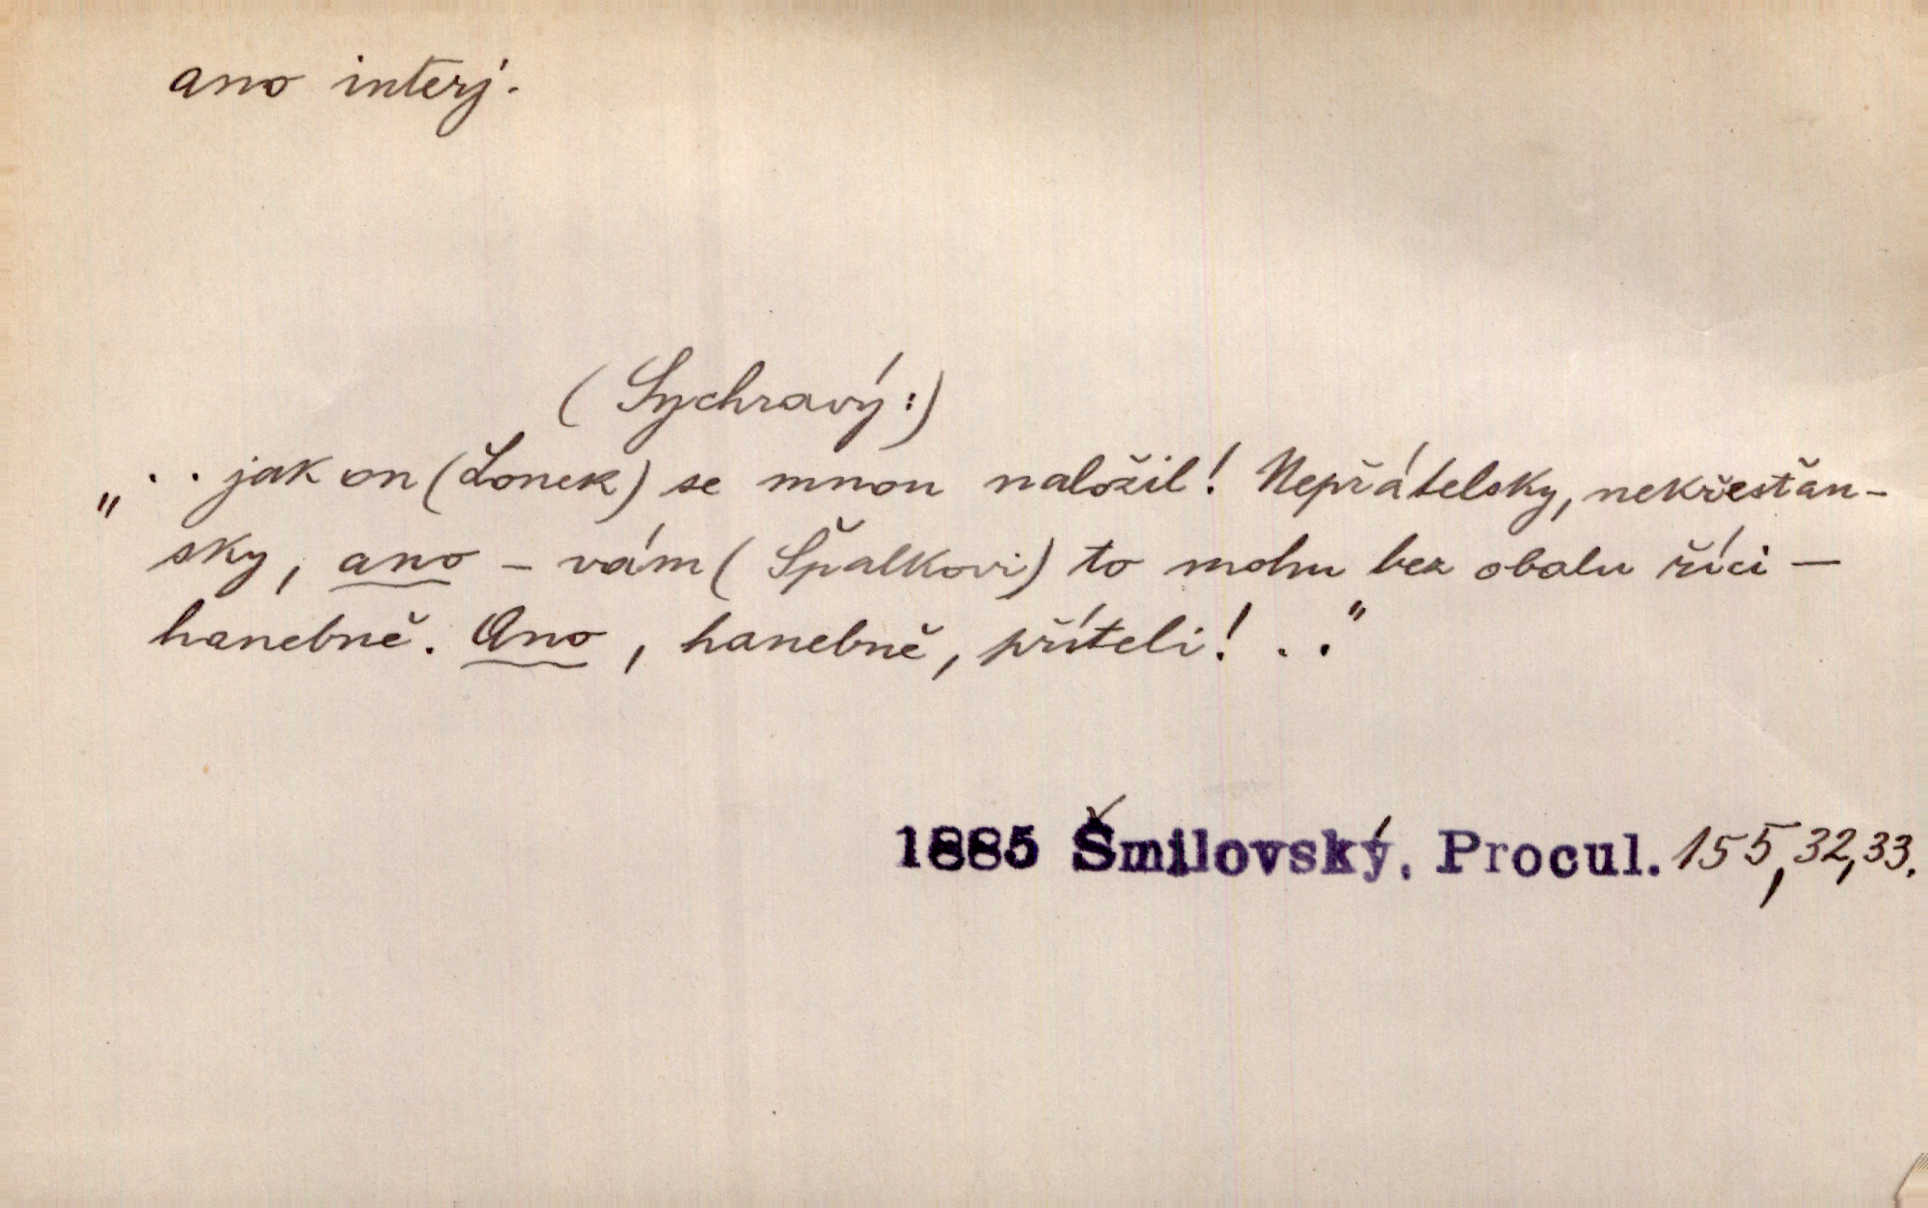 ano interj.
(Sychravý:)
„ . . jak on (Lonek) se mnou naložil! Nepřátelsky, nekřestan-
sky, ano – vám (Špalkovi) to mohu bez obalu říci –
hanebně. Ano, hanebně, příteli! . .“
1885 Šmilovský, Procul. 155, 32, 33.